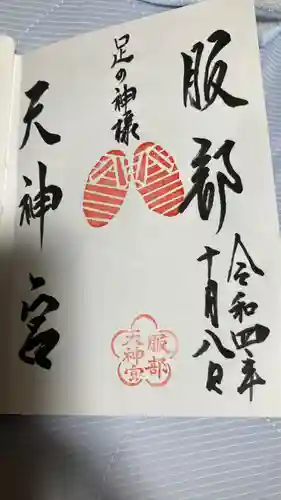 令和四年
十月八日
服部
足の神様
天神宮
服部
天神宮